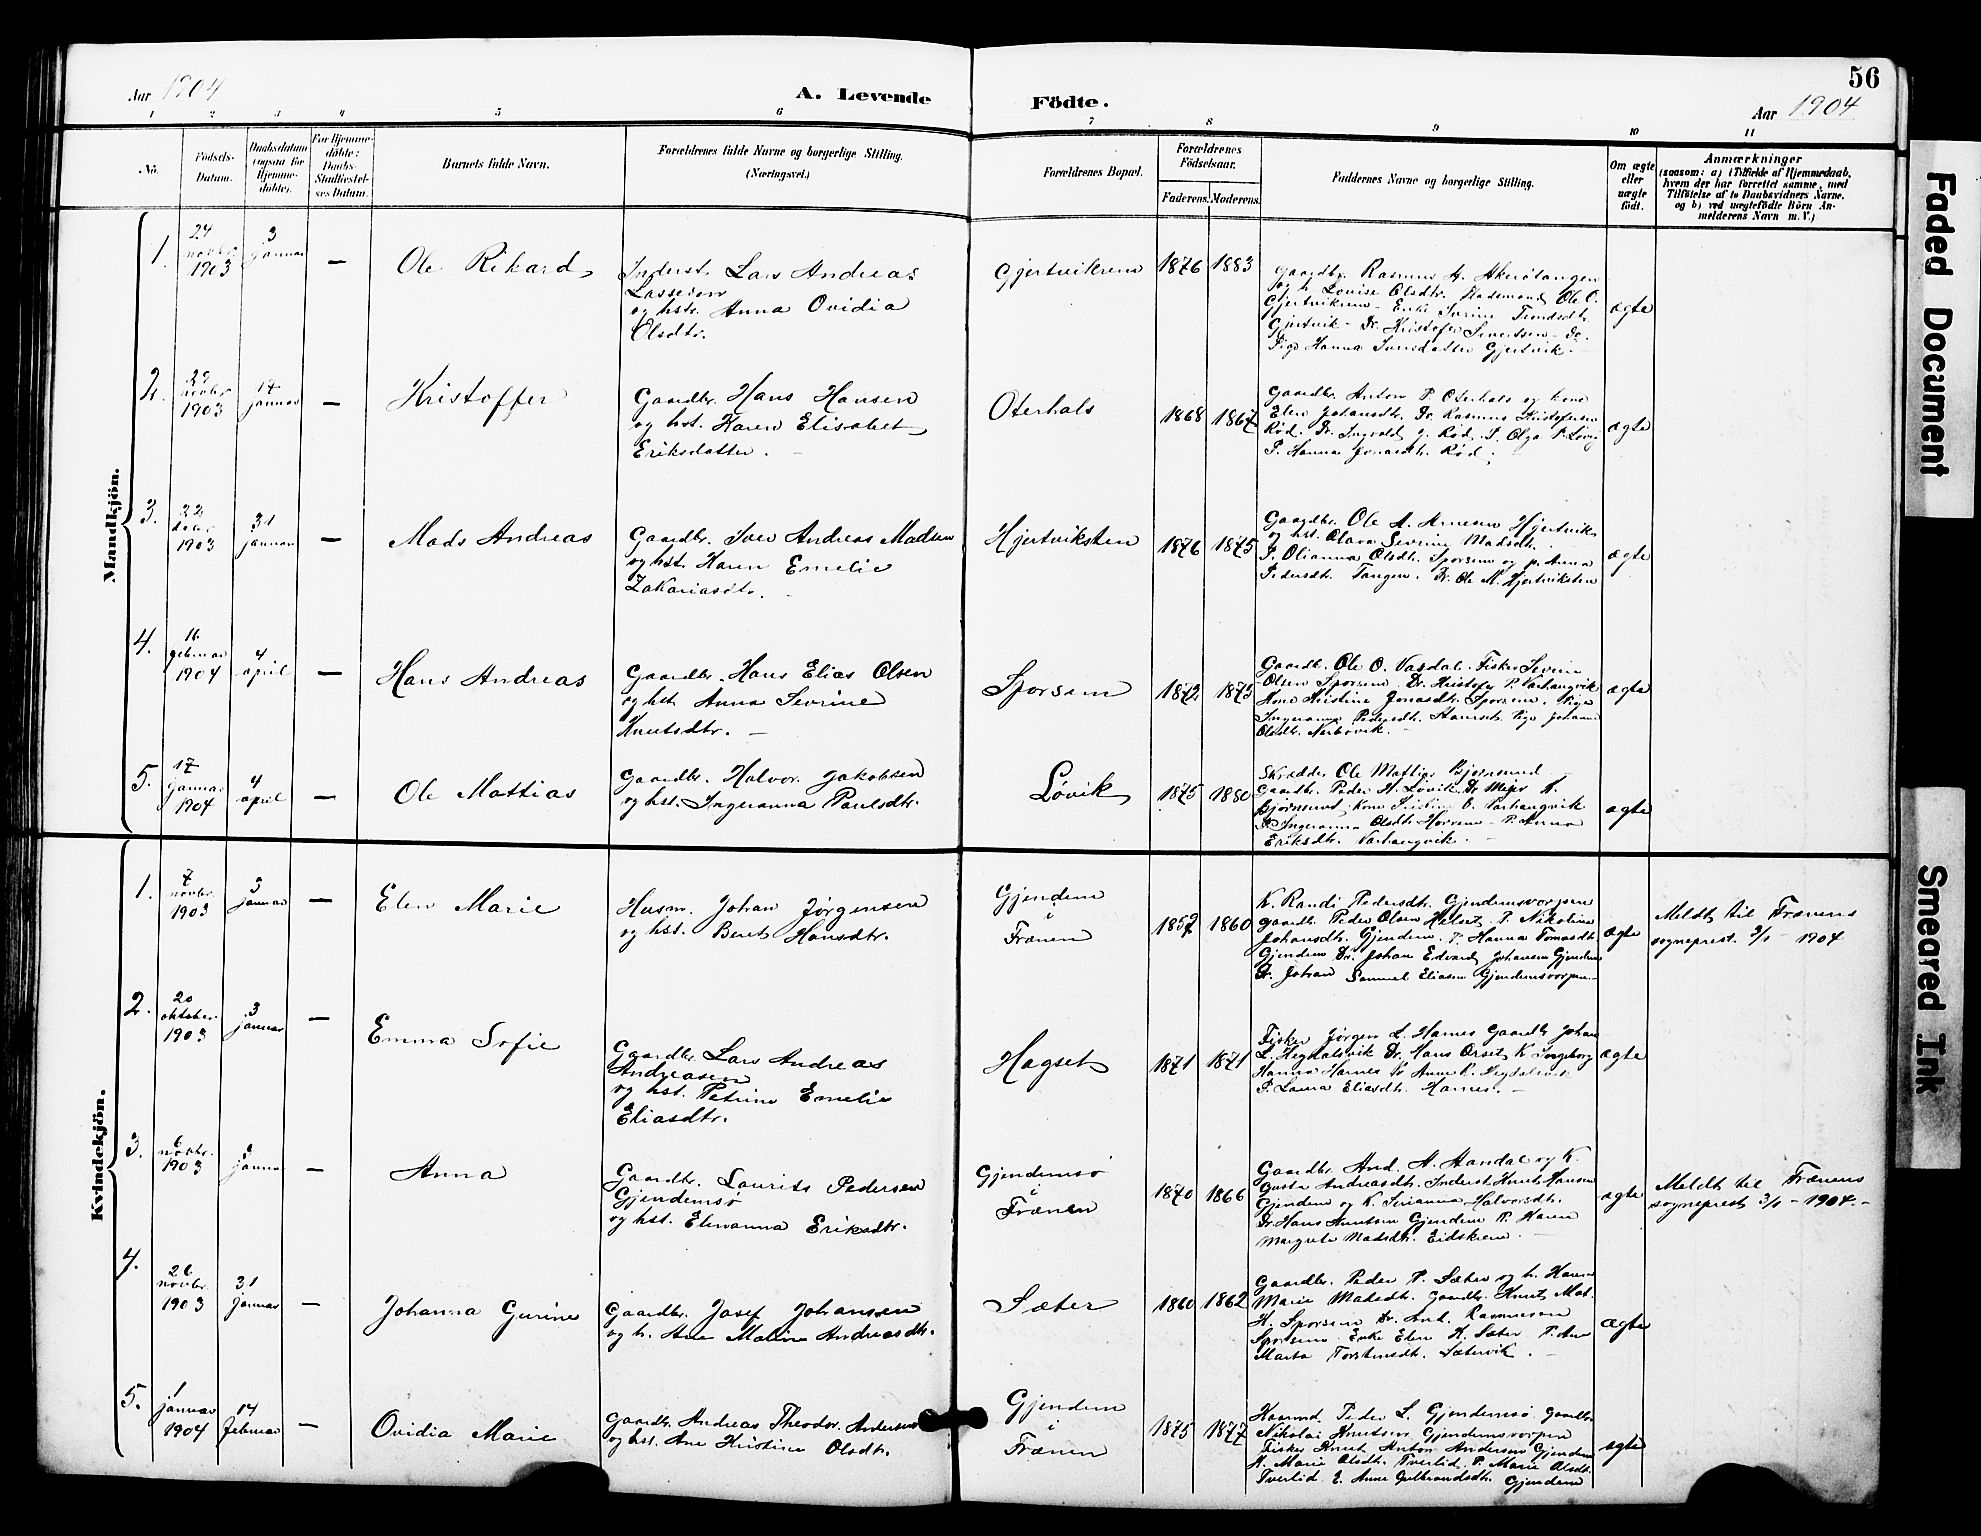 56
Aar 1904
A. Levende
Födte.
Aar 1904
1 2 3 4 5 6 7 8 9 10 11
No.
Födsels-
Datum.
Daabsdatum
(ogsaa for
Hjemme-
döbte).
For Hjemme-
döbte:
Daabs-
Stadfæstel-
ses Datum.
Barnets fulde Navn.
Forældrenes fulde Navne og borgerlige Stilling.
(Næringsvei.)
Forældrenes Bopæl.
Forældrenes
Födselsaar.
Faderens. Moderens.
Faddernes Navne og borgerlige Stilling.
Om ægte
eller
uægte
födt.
Anmærkninger
(saasom: a) i Tilfælde af Hjemmedaab,
hvem der har forrettet samme, med
Tilföielse af to Daabsvidners Navne,
og b) ved uægtefödte Börn An-
melderens Navn m. V.)
Mandkjön.
1.
24
novbr
1903
3
januar
—
Ole Rikard
Inderst Lars Andreas
Lassesen
og hstr. Anna Ovidia
Olsdtr.
Gjertvikrem
1876 1883
Gaardbr. Rasmus A. Akerötangen
og h. Lovise Olsdtr. Pladsmand Ole O.
Gjertvikrem
Gjertvik - Dr. Kristofer Severtsen - Dr.
Pige Hanna Iversdatter Gjertvik. -
ægte
2.
29
novbr
1903
17
januar
—
Kristoffer
Gaardbr. Hans Hansen
og hst. Karen Elisabet
Eriksdatter. -
Oterhals
1868 1867
Gaardbr. Anton P. Oterhals og kone
Elen Johansdtr. Dr. Rasmus Kristofersen
Rød. Dr. Ingvald J. Rød. P. Olga P. Løvig
P. Hanna Jonasdtr. Rød.
ægte
3.
22
decbr
1903
31
januar
—
Mads Andreas
Gaardbr. Iver Andreas Madsen
og hst. Karen Emelie
Zakariasdtr. -
Hjertviksten
1876 1875
Gaardbr. Ole A. Arnesen Hjertvik
og hst. Olava Severine Madsdtr.
P. Olianna Olsdtr. Sporsem og p. Anna
Pedersdtr. Tangen. Dr. Ole M. Hjertviksten
ægte
4.
11
februar
1904
4
april
—
Hans Andreas
Gaardbr. Hans Elias Olsen
og hst. Anna Sevrine
Knutsdtr. -
Sporsem
1872 1875
Gaardbr. Ole O. Vasdal. Fisker Severin
Olsen Sporsem. Dr. Kristofer P. Varhaugvik
Kone Kristine Jonasdtr. Sporsem. Pige
Ingeranna Pedersdtr. Pige Johanna
Olsdtr. Nerbøvik. -
ægte
5.
17
januar
1904
4
april
—
Ole Mattias
Gaardbr. Halvor Jakobsen
og hst. Ingeranna Paulsdtr.
Løvik
1875 1880
Skrædder Ole Mattias Bjørnsund
Gaardbr. Peder H. Løvik. Dr. Meier K.
Bjørnsund. Kone Kristine E. Varhaugvik
P. Ingeranna Olsdtr. Horrem - P. Anna
Eriksdtr. Varhaugvik. -
ægte
Kvindekjön.
1.
7
novbr.
1903
3
januar
—
Elen Marie
Husm. Johan Jørgensen
og hst. Beret Hansdtr.
Gjendem
i
Frænen
1857 1860
K. Randi Pedersdtr. Gjendemsvorpen
gaardbr. Peder Olsen Helset. P. Nikoline
Johansdtr. Gjendem. P. Hanna Tomasdtr.
Gjendem Dr. Johan Edvard Johansen Gjendem
Dr. Johan Samuel Eliasen Gjendemsvorpen
ægte
Meldt til Frænens
sogneprest 3/1 - 1904
2.
20
oktober
1903
3
januar
—
Emma Sofie
Gaardbr. Lars Andreas
Andreasen
og hst. Petrine Emelie
Eliasdtr.
Hagset
1871 1871
Fisker Jørgen L. Harnes Gaardbr. Johan
L. Hegdalsvik Dr. Hans Orset K. Ingeborg
Hanna Harnes
P. Laura Eliasdtr. Harnes. -
ægte
3.
6
novbr.
1903
januar
—
Anna
Gaardbr. Laurits Pedersen
Gjendemsø
og hst. Elenanna Eriksdtr.
Gjendemsø
i
Frænen
1870 1866
Gaardbr. And. A. Aandal og K.
Gusta Andreasdtr. Inderst Knut Hansen
Gjendem og K. Serianna Halvorsdtr.
Dr. Hans Knutsen Gjendem P. Karen
Margrete Madsdtr. Eidskrem. -
ægte
Meldt til Frænens
sogneprest 3/1 - 1904. -
4.
26
novbr.
1903
31
januar
—
Johanna Gurine
Gaardbr. Josef Johansen
og h. Ane Maline Andreasdtr.
Sæter
1860 1862
Gaardbr. Peder P. Sæter og h. Karen
Marie Madsdtr. Gaardbr. Knut Mat.
K. Sporsem Dr. And. Rasmussen
Sporsem. Enke Elen K. Sæter P. Ane
Marta Torstensdtr. Sætervik. -
ægte
5.
1
januar
1904
14
februar
—
Ovidia Marie
Gaardbr. Andreas Theodor Andersen
og hst. Ane Kristine Olsdtr.
Gjendem
i
Frænen
1875 1877
Kaarmd. Peder L. Gjendemsø Gaardbr.
Nikolai Knutsen Gjendemsvorpen
Fisker Knut Anton Andersen Gjendem
K. Marie Olsdtr. Tverlid. P. Marie Olsdtr.
Tverlid. E. Anne Gulbrandsdtr. Gjendem
ægte
Faded Document
Smeared Ink